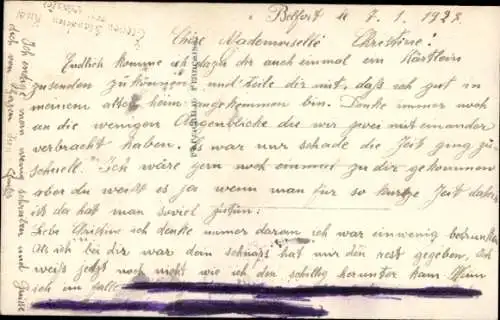 Belfort le 7.1.1928
Chère Mademoiselle Christine!
Endlich komme ich dazu dir auch einmal ein Kärtlein
zusenden zu können und teile dir mit, daß ich gut in
meinem alten heim angekommen bin. Denke immer noch
an die wenigen Augenblicke die wir zwei miteinander
verbracht haben. Es war nur schade die Zeit ging zu
schnell. Ich wäre gern noch einmal zu dir gekommen
aber du weißt es ja wenn man für so kurze Zeit daher
ist da hat man soviel zutun.
Liebe Christine ich denke immer daran ich war ein wenig betrunken
Als ich bei dir war dein schnaps hat mir den rest gegeben, Ich
weiß jetzt noch nicht wie ich den herunter kam
ich im falle
Ich endige nun mein schreiben und
dich von Herzen